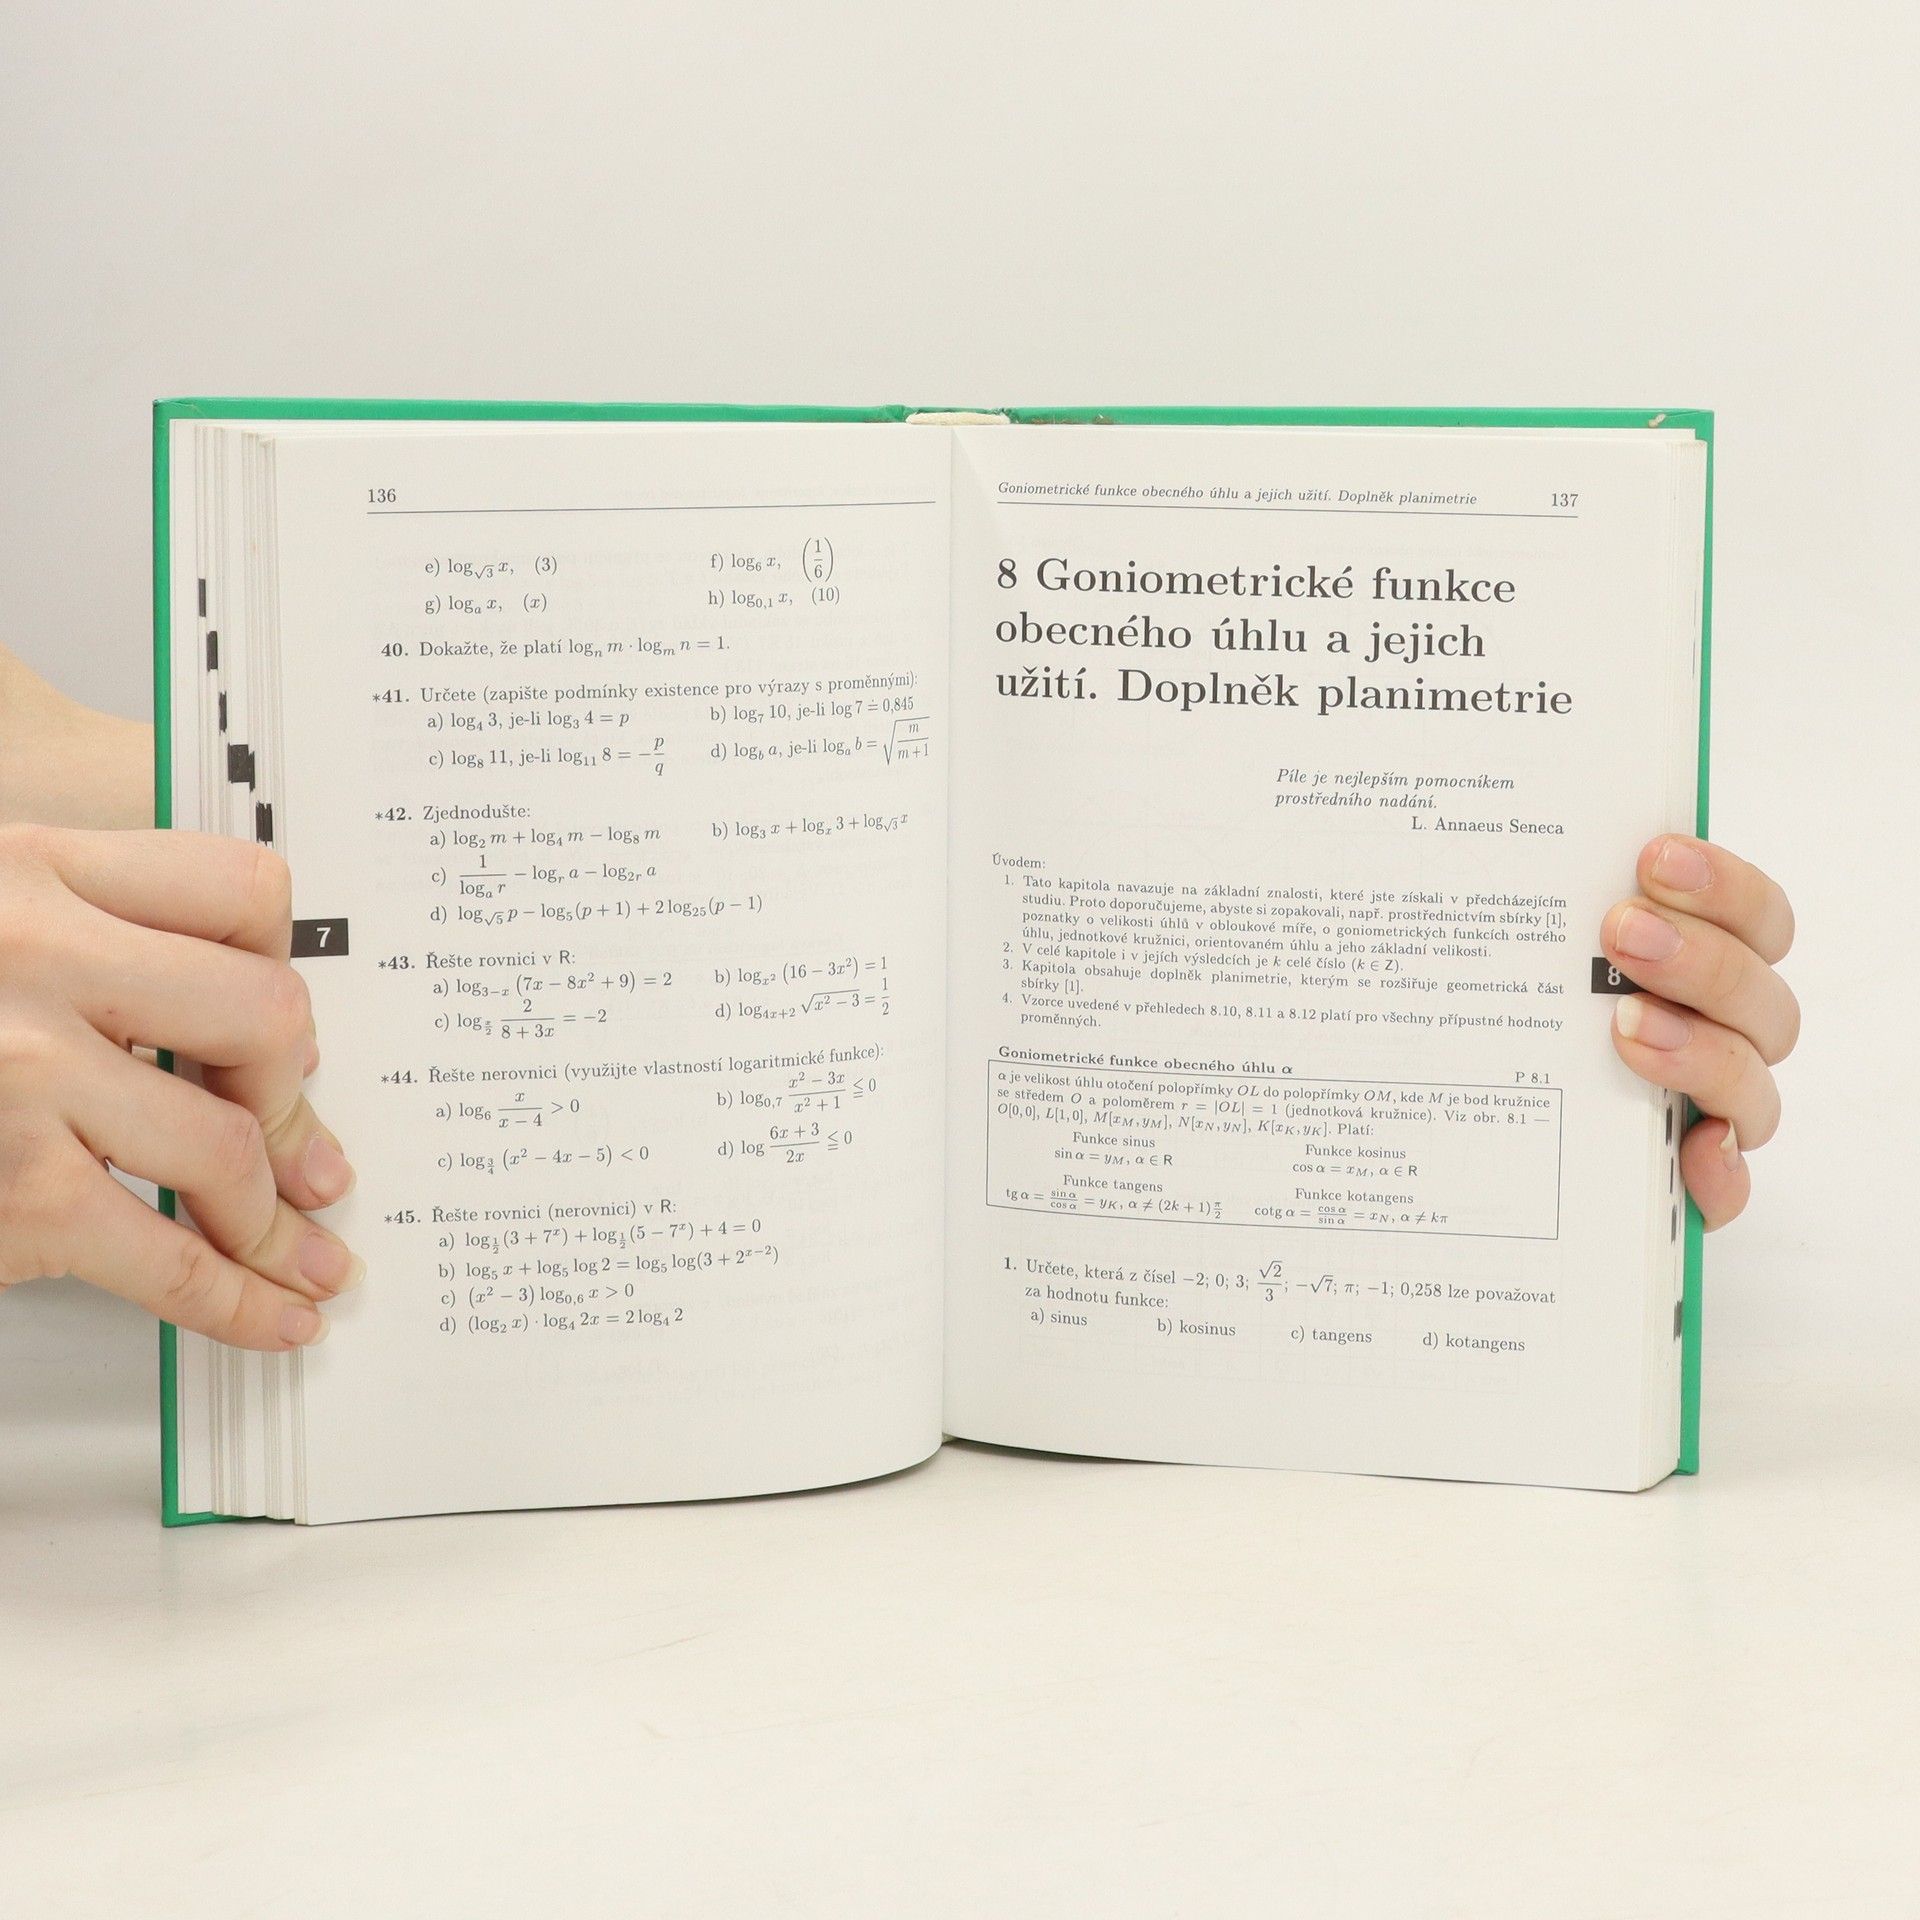 136
e) log√3 x, (3) f) log6 x, (1/6)
g) loga x, (x) h) log0,1 x, (10)
40. Dokažte, že platí logn m · logm n = 1.
*41. Určete (zapište podmínky existence pro výrazy s proměnnými):
a) log4 3, je-li log3 4 = p b) log7 10, je-li log 7 ≐ 0,845
c) log8 11, je-li log11 8 = −p/q d) logb a, je-li loga b = √(m/(m+1))
*42. Zjednodušte:
a) log2 m + log4 m − log8 m b) log3 x + logx 3 + log√3 x
c) 1/(loga r) − logr a − log2r a
d) log√5 p − log5(p + 1) + 2 log25(p − 1)
*43. Řešte rovnici v R:
a) log3−x (7x − 8x² + 9) = 2 b) logx² (16 − 3x²) = 1
c) logx/2 2/(8 + 3x) = −2 d) log4x+2 √(x² − 3) = 1/2
*44. Řešte nerovnici (využijte vlastností logaritmické funkce):
a) log6 x/(x − 4) > 0 b) log0,7 (x² − 3x)/(x² + 1) ≦ 0
c) log3/4 (x² − 4x − 5) < 0 d) log (6x + 3)/2x ≦ 0
*45. Řešte rovnici (nerovnici) v R:
a) log1/2 (3 + 7ˣ) + log1/2 (5 − 7ˣ) + 4 = 0
b) log5 x + log5 log 2 = log5 log(3 + 2ˣ⁻²)
c) (x² − 3) log0,6 x > 0
d) (log2 x) · log4 2x = 2 log4 2
7
Goniometrické funkce obecného úhlu a jejich užití. Doplněk planimetrie 137
8 Goniometrické funkce
obecného úhlu a jejich
užití. Doplněk planimetrie
Píle je nejlepším pomocníkem
prostředního nadání.
L. Annaeus Seneca
Úvodem:
1. Tato kapitola navazuje na základní znalosti, které jste získali v předcházejícím
studiu. Proto doporučujeme, abyste si zopakovali, např. prostřednictvím sbírky [1],
poznatky o velikosti úhlů v obloukové míře, o goniometrických funkcích ostrého
úhlu, jednotkové kružnici, orientovaném úhlu a jeho základní velikosti.
2. V celé kapitole i v jejích výsledcích je k celé číslo (k ∈ Z).
3. Kapitola obsahuje doplněk planimetrie, kterým se rozšiřuje geometrická část
sbírky [1].
4. Vzorce uvedené v přehledech 8.10, 8.11 a 8.12 platí pro všechny přípustné hodnoty
proměnných.
8
Goniometrické funkce obecného úhlu α P 8.1
α je velikost úhlu otočení polopřímky OL do polopřímky OM, kde M je bod kružnice
se středem O a poloměrem r = |OL| = 1 (jednotková kružnice). Viz obr. 8.1 —
O[0,0], L[1,0], M[xM, yM], N[xN, yN], K[xK, yK]. Platí:
Funkce sinus Funkce kosinus
sin α = yM, α ∈ R cos α = xM, α ∈ R
Funkce tangens Funkce kotangens
tg α = sin α/cos α = yK, α ≠ (2k + 1)π/2 cotg α = cos α/sin α = xN, α ≠ kπ
1. Určete, která z čísel −2; 0; 3; √2/3; −√7; π; −1; 0,258 lze považovat
za hodnotu funkce:
a) sinus b) kosinus c) tangens d) kotangens